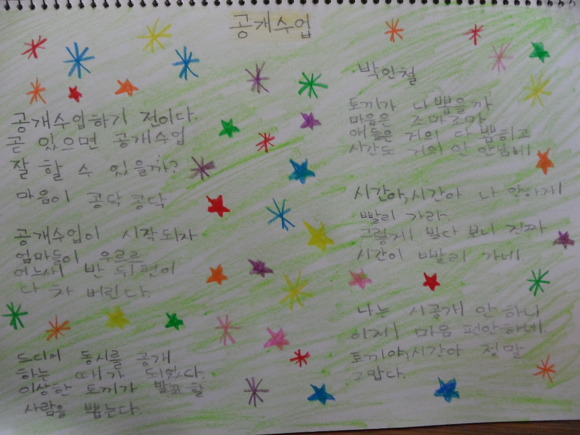 공개수업
박인철
공개수업하기 전이다.
곧 있으면 공개수업
잘 할 수 있을까?
마음이 콩닥 콩닥
공개수업이 시작되자
엄마들이 우르르
어느새 반 뒤편이
다 차 버린다.
드디어 동시를 공개
하는 때가 되었다.
이상한 토끼가 발표할
사람을 뽑는다.
토끼가 나 뽑을까
마음은 조마조마
애들은 거의 다 뽑히고
시간도 거의 안 남네
시간아, 시간아 나 안하게
빨리 가라.
그렇게 빌다 보니 진짜
시간이 빨리 가네
나는 시공개 안 하니
이제 마음 편안하네.
토끼야, 시간아 정말
고맙다.